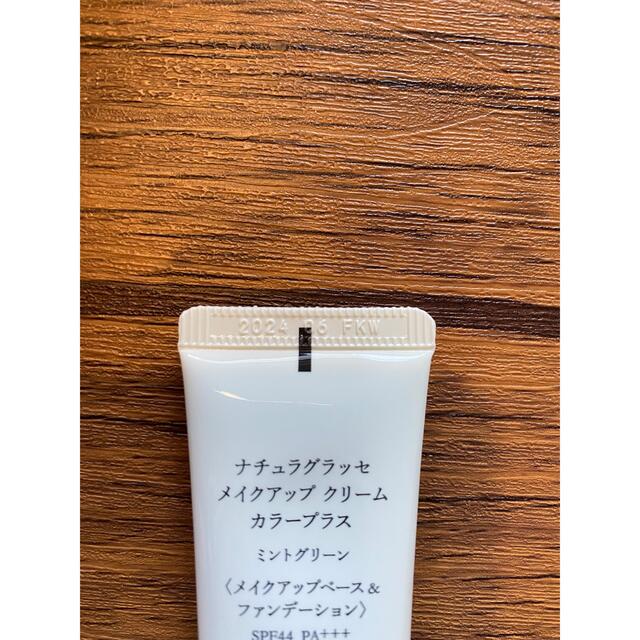 2024 06 FKW
ナチュラグラッセ
メイクアップ クリーム
カラープラス
ミントグリーン
〈メイクアップベース&
ファンデーション〉
SPF44 PA+++